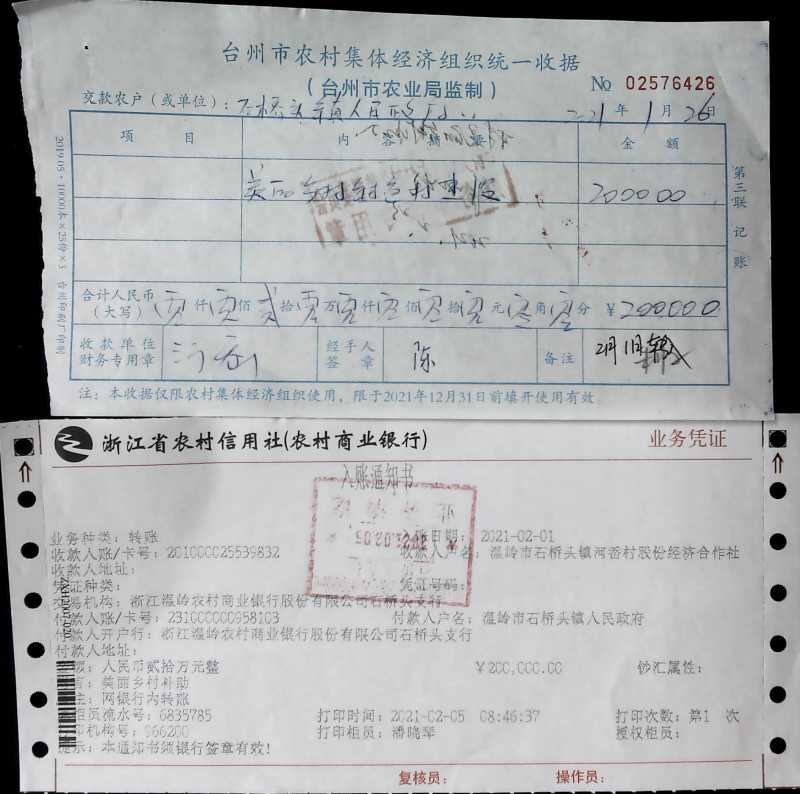 台州市农村集体经济组织统一收据
(台州市农业局监制)
No 02576426
交款农户（或单位）：石桥头镇人民政府 2021年1月26日
项目 内容摘要 金额
美丽乡村 200000
合计人民币（大写） 零仟零佰贰拾零万零仟零佰零拾零元零角零分 ￥200000.0
收款单位财务专用章 经手人签章 陈 备注 2月1日转入
注：本收据仅限农村集体经济组织使用，限于2021年12月31日前填开使用有效
第三联 记账
2019.05·10000本×25份×3 台州印刷厂印制
浙江省农村信用社(农村商业银行) 业务凭证
入账通知书
业务种类：转账 入账日期：2021-02-01
收款人账/卡号：201000025539832 收款人户名：温岭市石桥头镇河岙村股份经济合作社
收款人地址：
凭证种类： 凭证号码：
交易机构：浙江温岭农村商业银行股份有限公司石桥头支行
付款人账/卡号：231000000958103 付款人户名：温岭市石桥头镇人民政府
付款人开户行：浙江温岭农村商业银行股份有限公司石桥头支行
付款人地址：
额：人民币贰拾万元整 ￥200,000.00 钞汇属性：
美丽乡村补助
网银行内转账
柜员流水号：6835785 打印时间：2021-02-05 08:46:37 打印次数：第1 次
机构号：966200 打印柜员：潘晓琴 授权柜员：
提示：本通知书须银行签章有效！
复核员： 操作员：